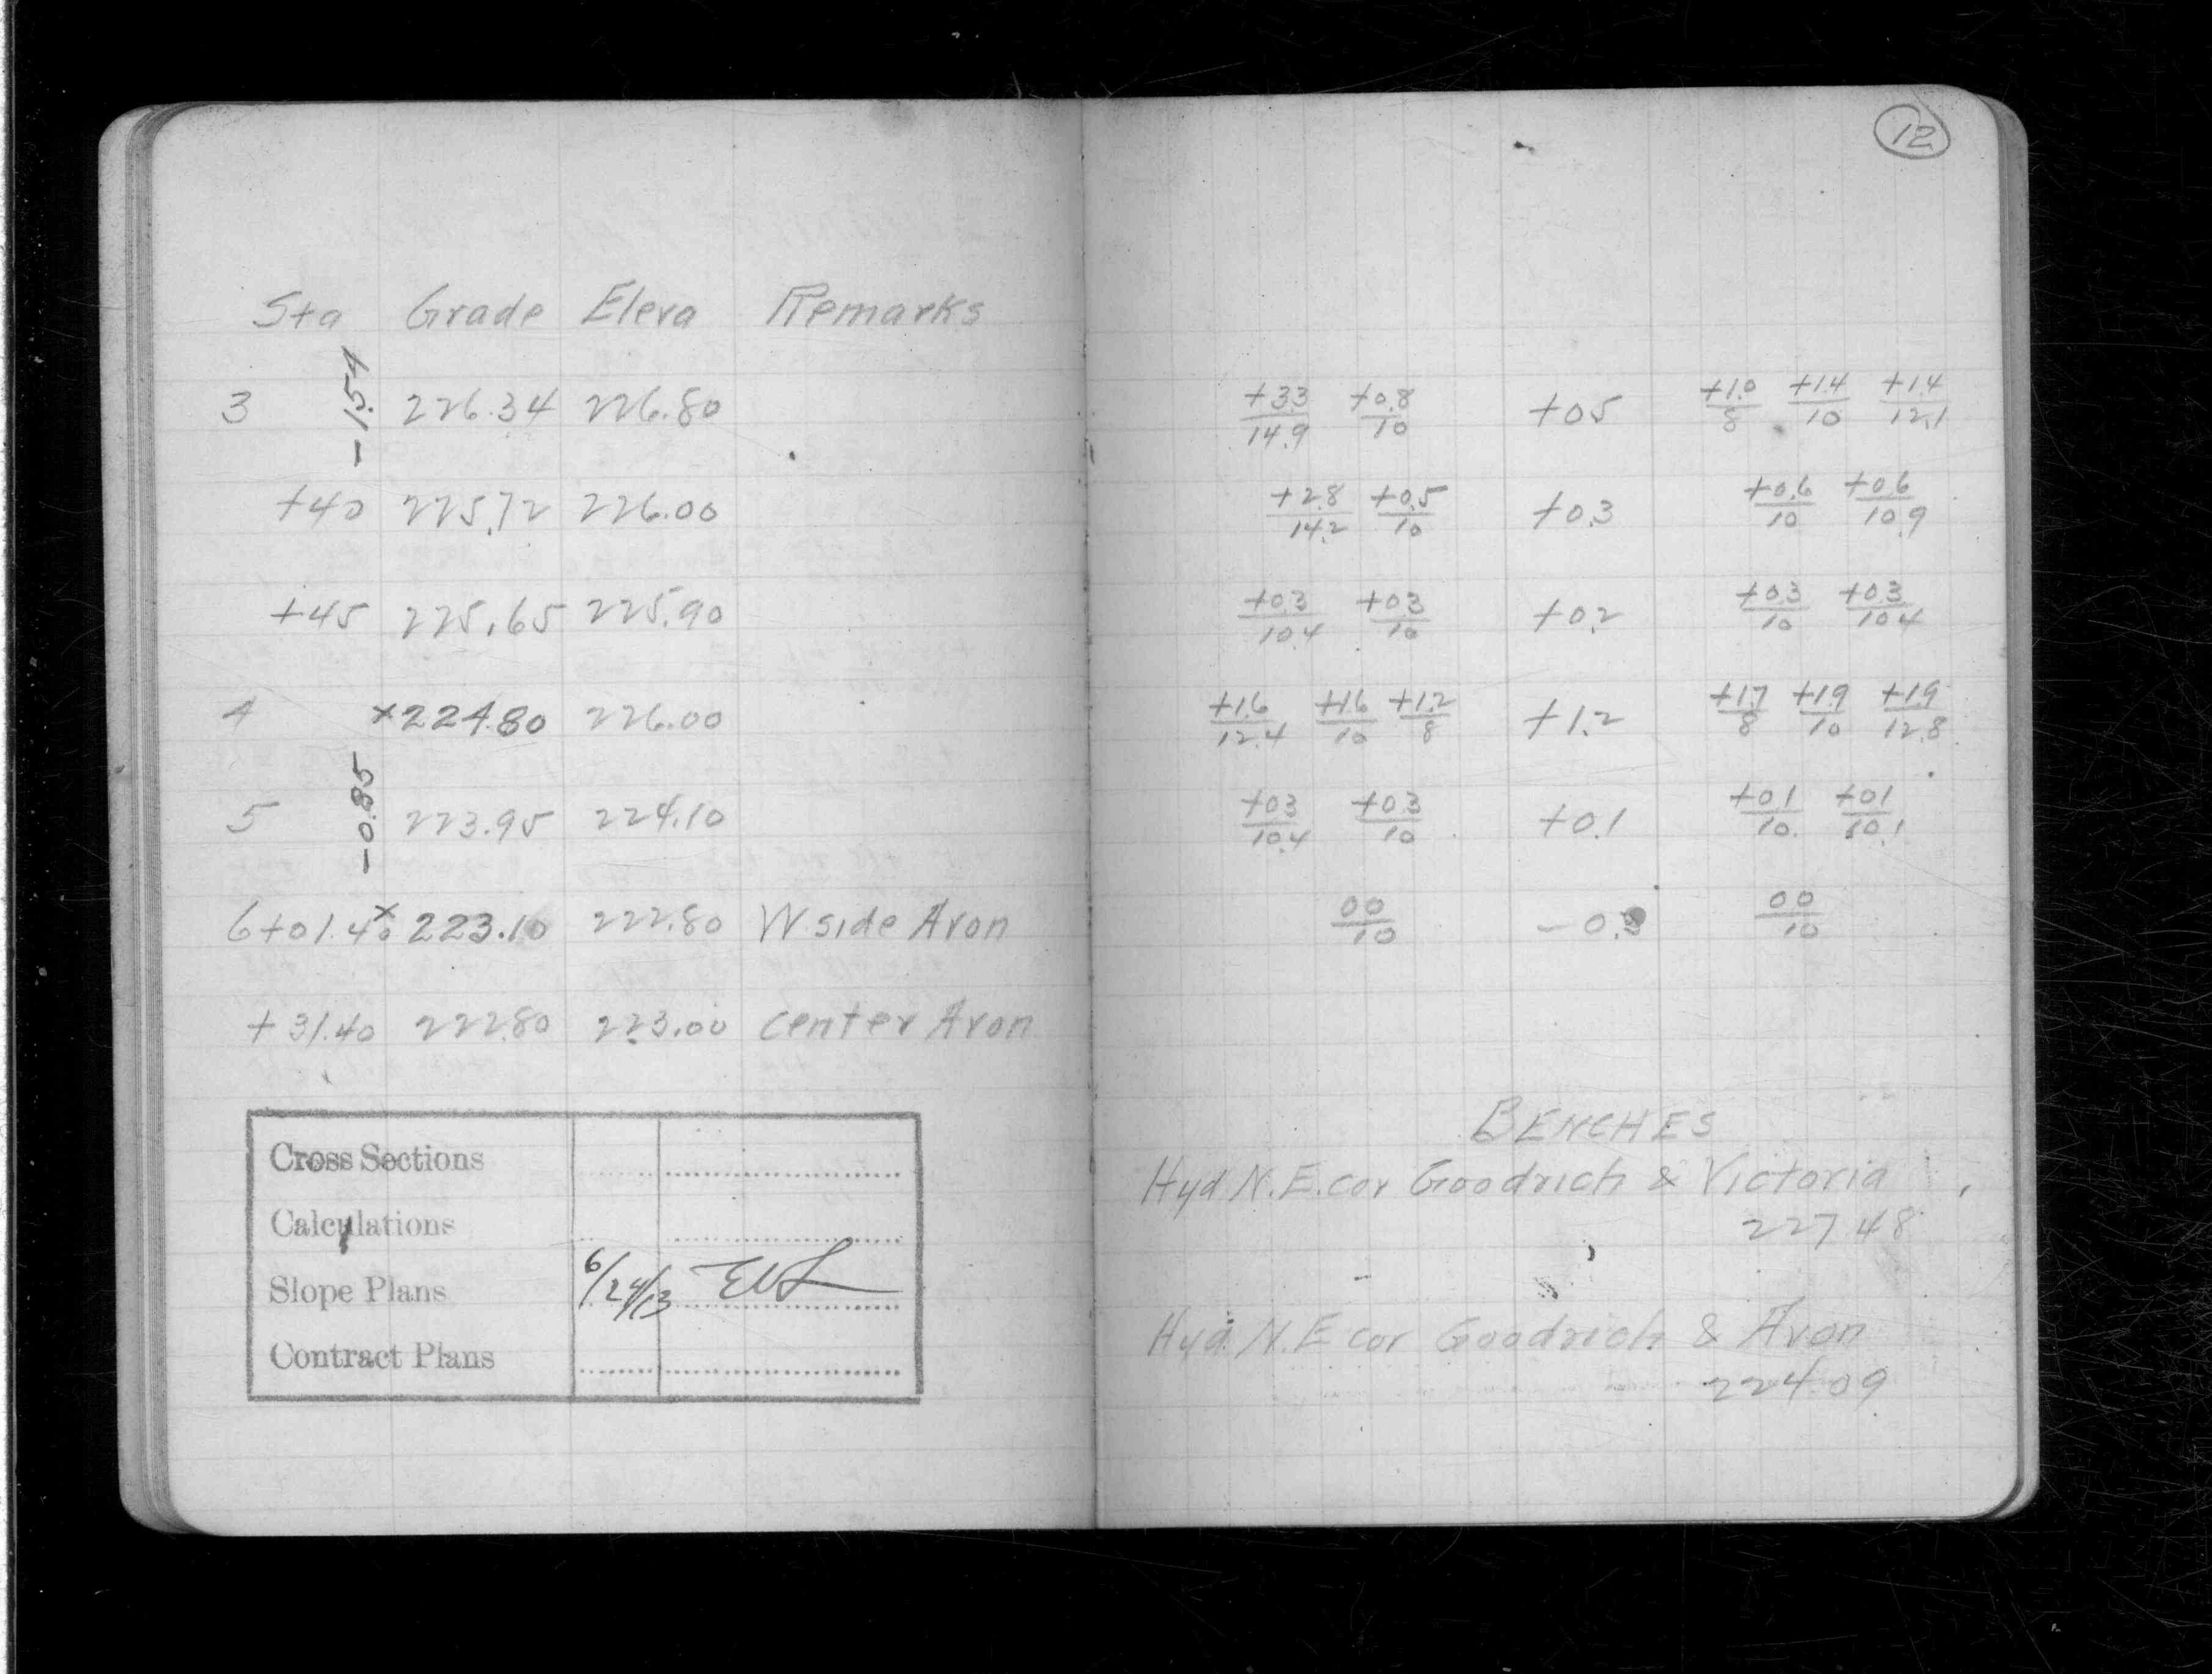 12
Sta Grade Eleva Remarks
-1.54
3 226.34 226.80 +3.3/14.9 +0.8/10 +0.5 +1.0/8 +1.4/10 +1.4/12.1
+40 225.72 226.00 +2.8/14.2 +0.5/10 +0.3 +0.6/10 +0.6/10.9
+45 225.65 225.90 +0.3/10.4 +0.3/10 +0.2 +0.3/10 +0.3/10.4
4 ×224.80 226.00 +1.6/12.4 +1.6/10 +1.2/8 +1.2 +1.7/8 +1.9/10 +1.9/12.8
-0.85
5 223.95 224.10 +0.3/10.4 +0.3/10 +0.1 +0.1/10 +0.1/10.1
6+01.40 ×223.10 222.80 W. side Avon 00/10 -0.3 00/10
+31.40 222.80 223.00 Center Avon
Cross Sections
Calculations
Slope Plans 6/24/13 EWL
Contract Plans
BENCHES
Hyd N.E. cor Goodrich & Victoria
227 48
Hyd. N.E cor Goodrich & Avon
224.09